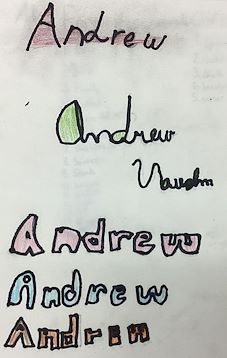 Andrew
Andrew
Andrew
Andrew
Andrew